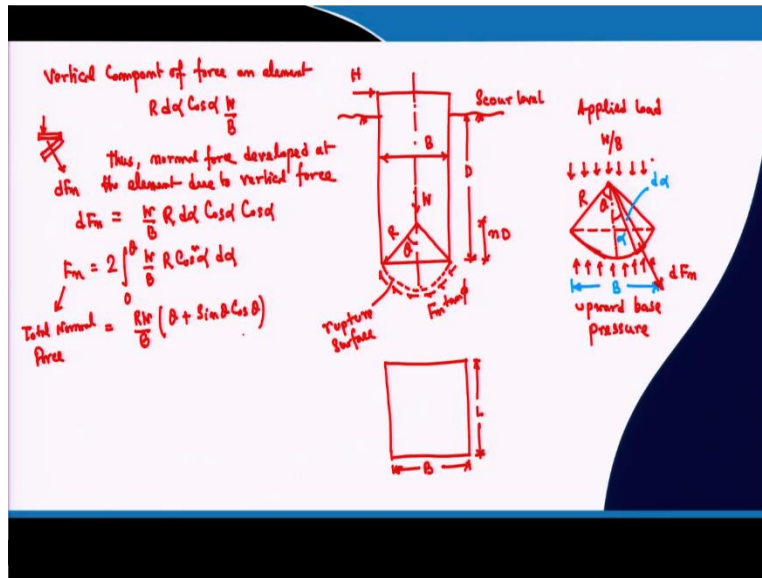 Vertical Component of force on element
R dα Cosα W/B
dFn
Thus, normal force developed at
the element due to vertical force
dFn = W/B R dα Cosα Cosα
Fn = 2 ∫₀^θ W/B R Cos²α dα
Total Normal Force
= RW/B (θ + Sinθ Cosθ)
H
Scour level
B
D
W
nD
R
θ
rupture
surface
Fn tanφ
L
B
Applied load
W/B
R
θ
dα
α
B
dFn
upward base
pressure